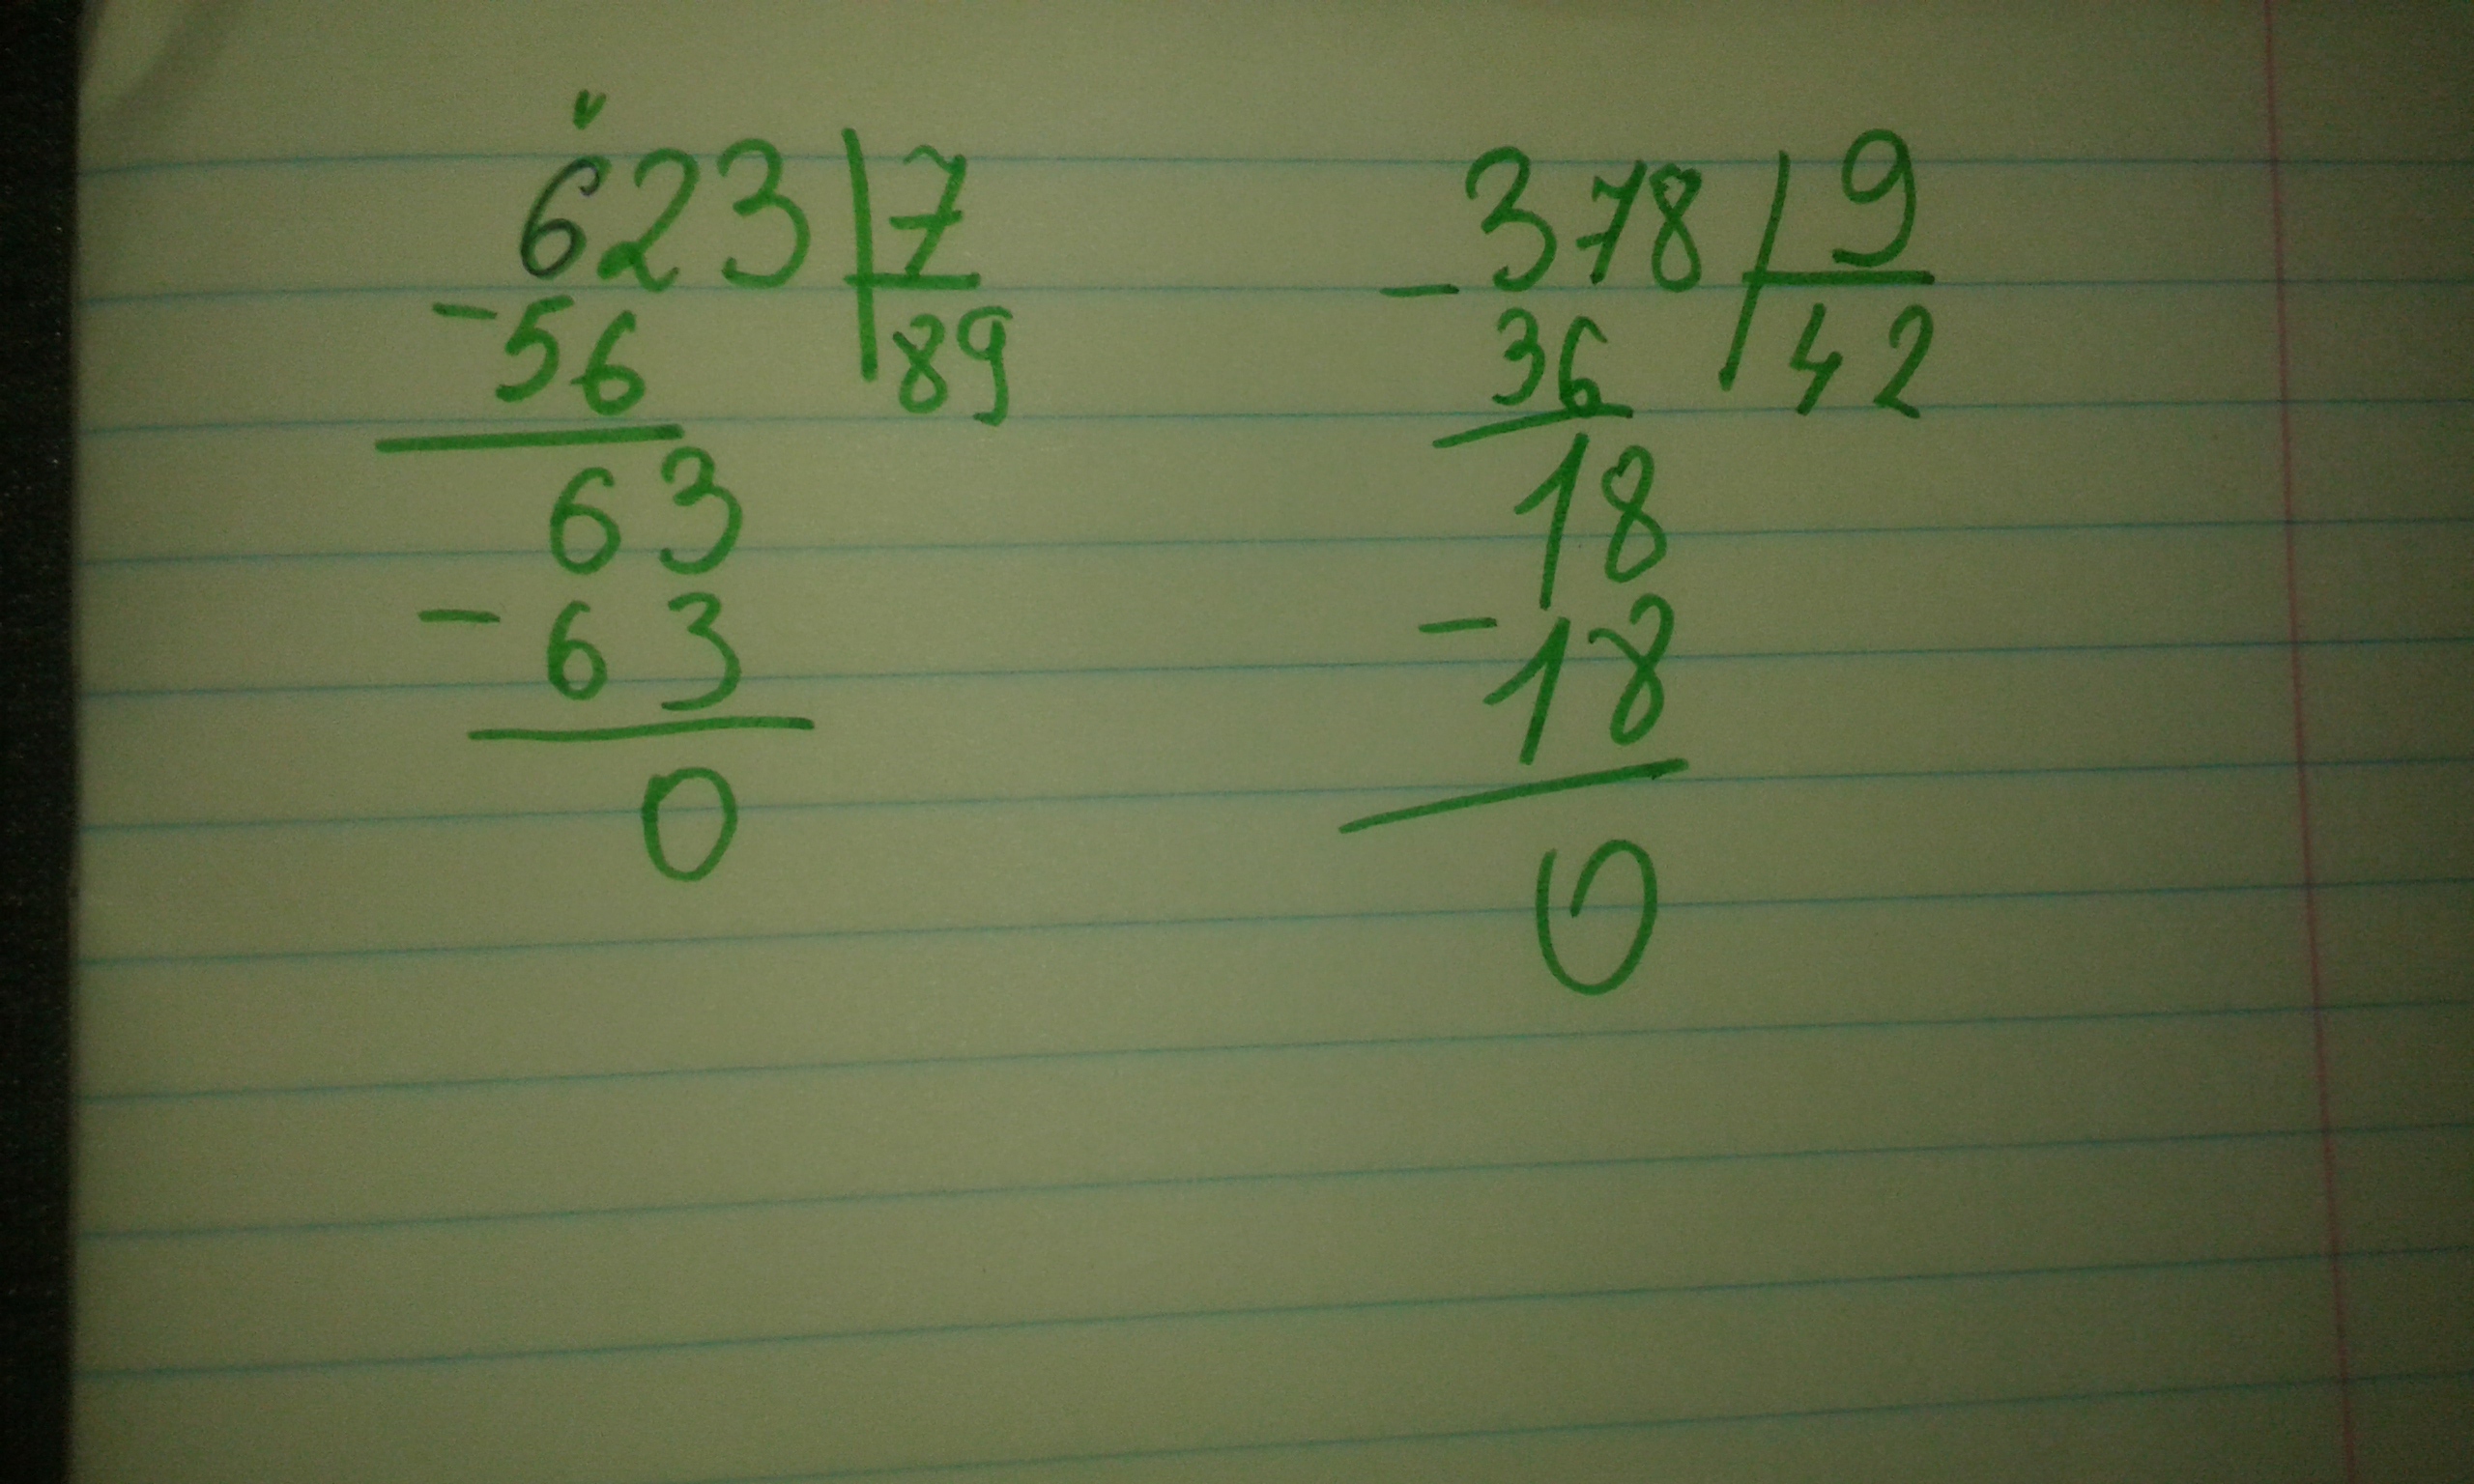 623 | 7
-56 | 89
63
-63
0
-378 | 9
36 | 42
18
-18
0